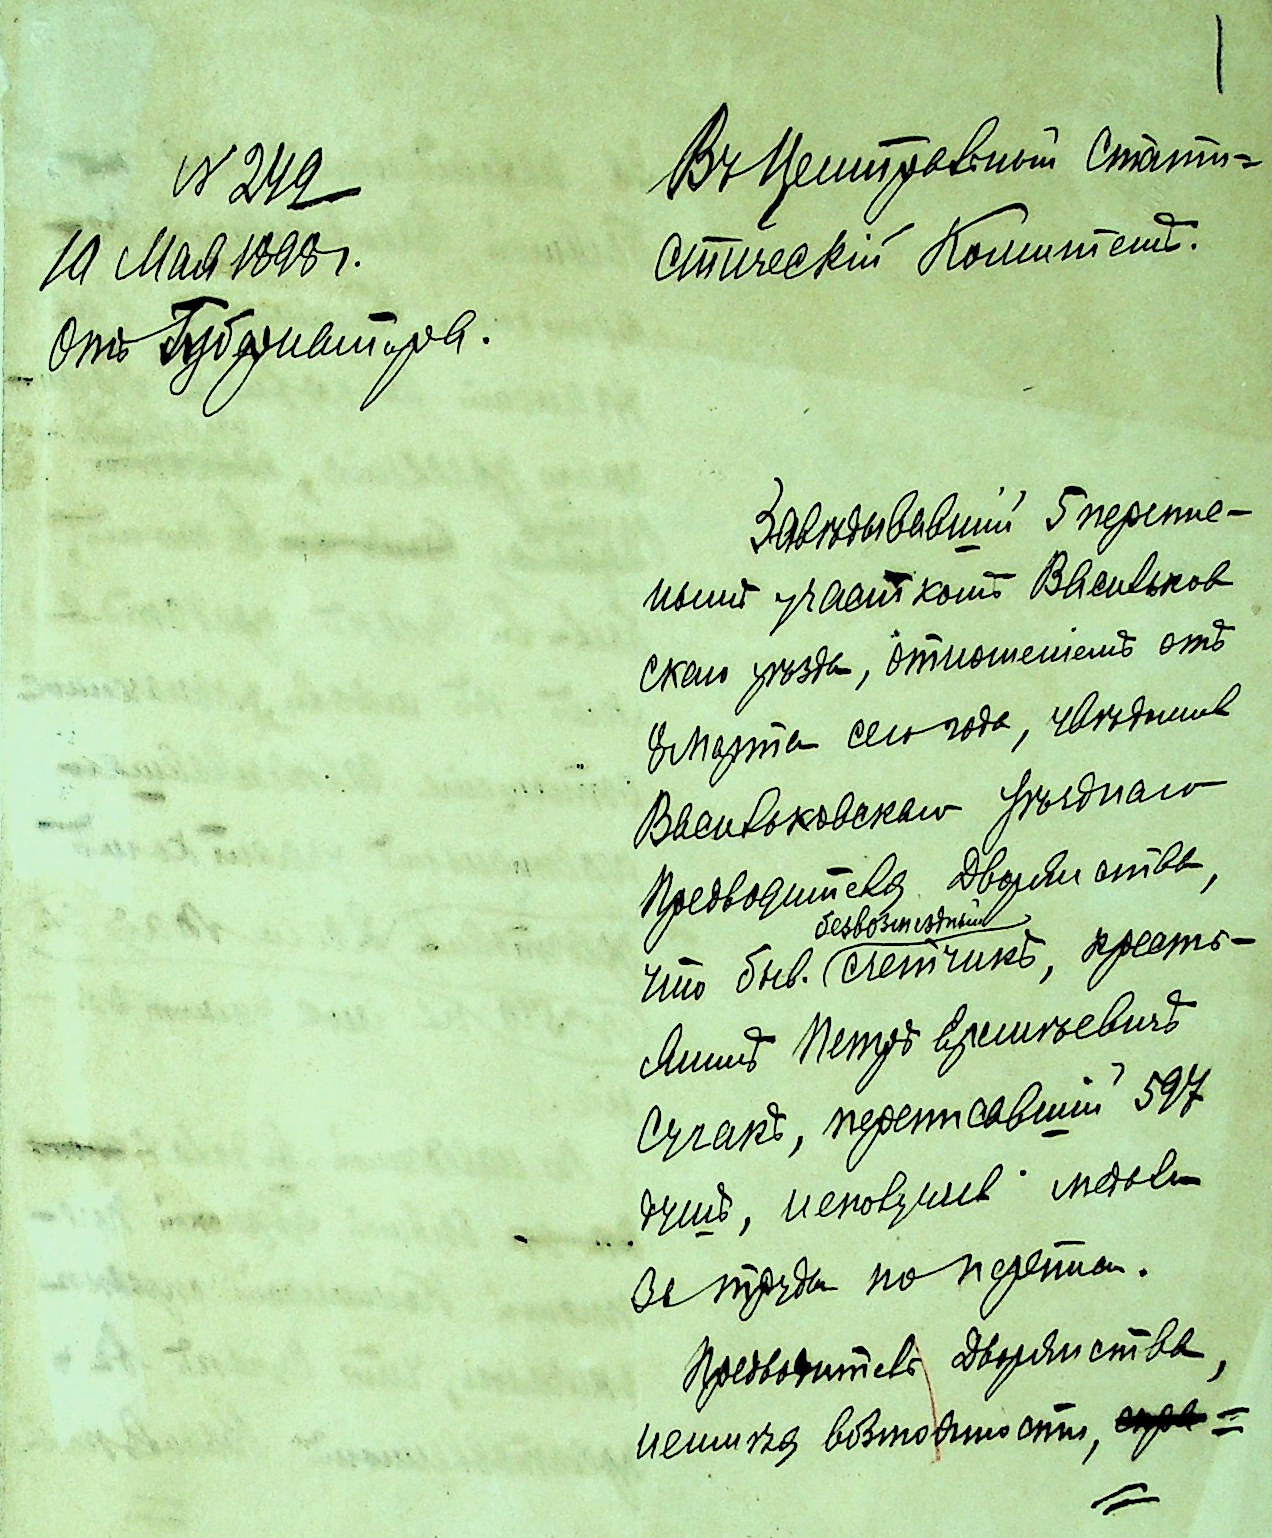 № 249
10 Мая 1898 г.
Отъ Губернатора.
Въ Центральный Стати=
стическій Комитетъ.
Завѣдывавшій 5 перепис-
нымъ участкомъ Васильков
скаго уѣзда, отношеніемъ отъ
8 Марта сего года, увѣдомив
Васильковскаго Уѣзднаго
Предводителя Дворянства,
безвозмездный
что быв. счетчикъ, кресть-
янинъ Петръ
Сучакъ, переписавшій 597
душъ, неполучив медали
за труды по переписи.
Предводитель Дворянства,
неимѣя возможности,